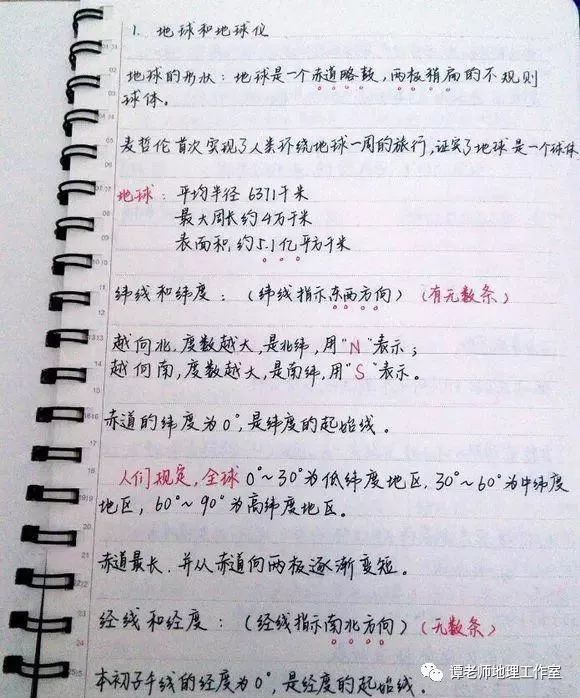 1. 地球和地球仪
地球的形状：地球是一个赤道略鼓，两极稍扁的不规则
球体。
麦哲伦首次实现了人类环绕地球一周的旅行，证实了地球是一个球体
地球：平均半径 6371千米
最大周长约4万千米
表面积约5.1亿平方千米
纬线和纬度：（纬线指示东西方向）（有无数条）
越向北，度数越大，是北纬，用"N"表示；
越向南，度数越大，是南纬，用"S"表示。
赤道的纬度为0°，是纬度的起始线。
人们规定，全球0°~30°为低纬度地区，30°~60°为中纬度
地区，60°~90°为高纬度地区。
赤道最长，并从赤道向两极逐渐变短。
经线和经度：（经线指示南北方向）（无数条）
本初子午线的经度为0°，是经度的起始线.
谭老师地理工作室